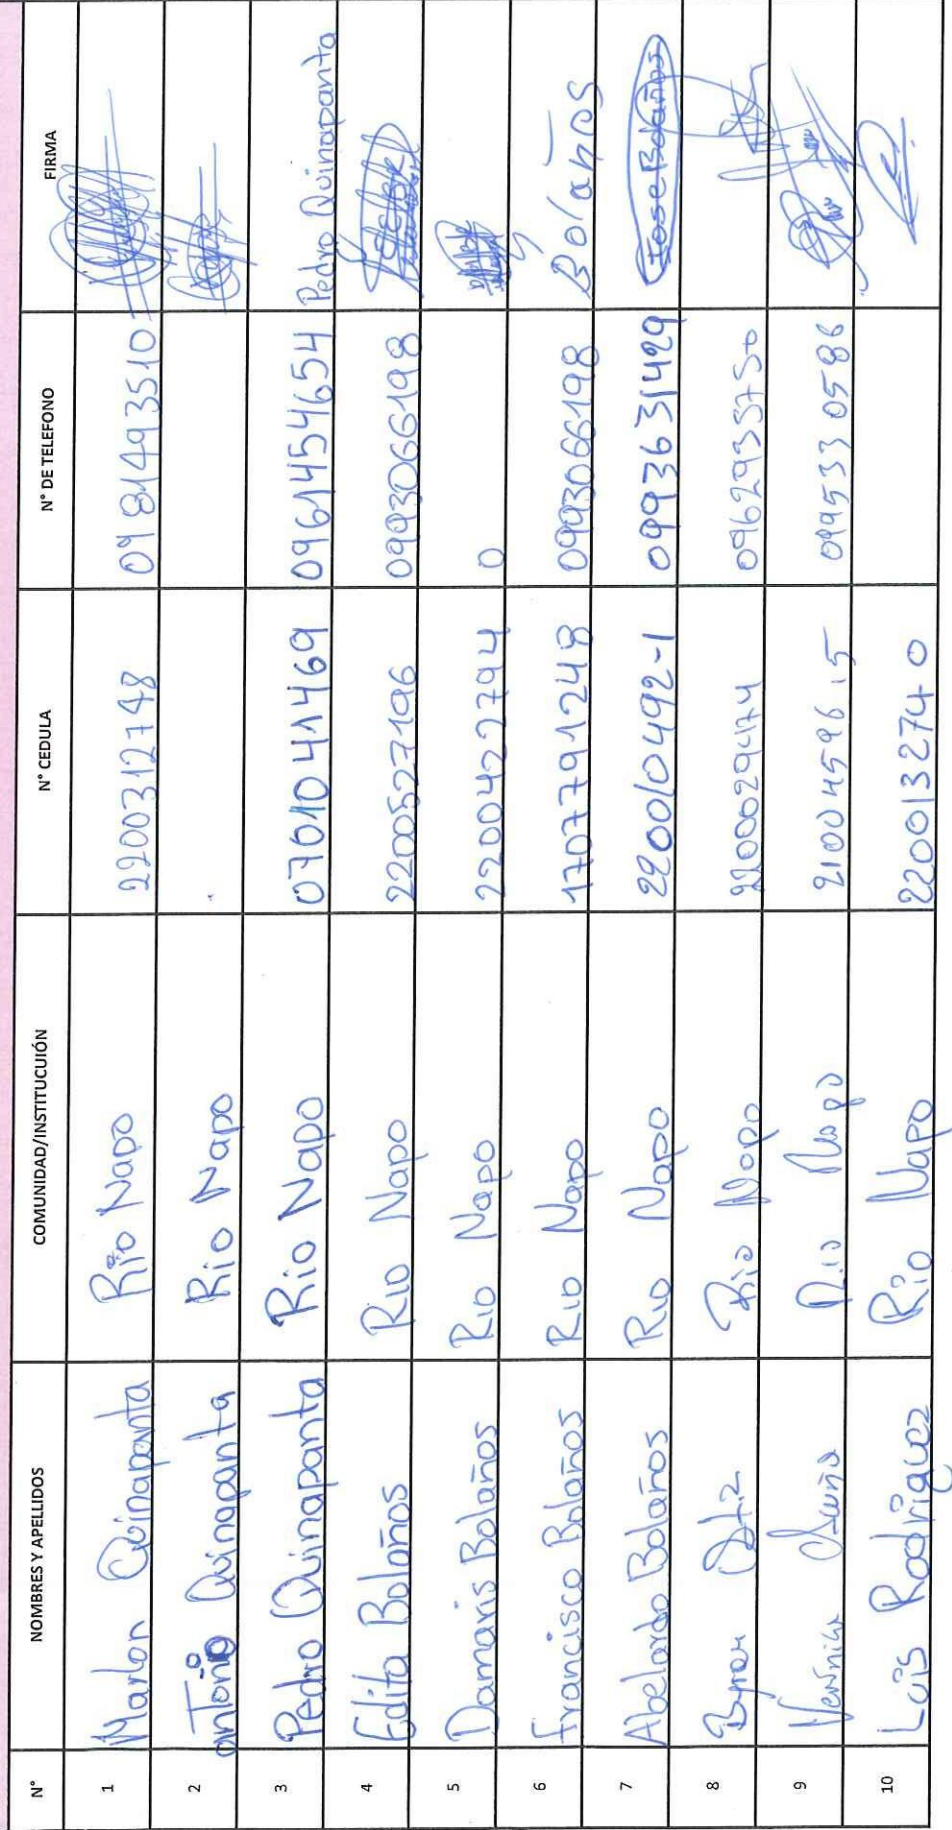 N° NOMBRES Y APELLIDOS COMUNIDAD/INSTITUCUIÓN N° CEDULA N° DE TELEFONO FIRMA
1 Marlon Quinapanta Rio Napo 2200312748 0981493510
2 Antonio Quinapanta Rio Napo
3 Pedro Quinapanta Rio Napo 0701041469 0961454654 Pedro Quinapanta
4 Edita Bolaños Rio Napo 2200527196 0993066198
5 Damaris Bolaños Rio Napo 2200422794 0
6 Francisco Bolaños Rio Napo 1707791248 0993066198 Bolaños
7 Abelardo Bolaños Rio Napo 220010492-1 0993631429 Jose Bolaños
8 Byron Rio Napo 0962933750
9 Rio Napo 2100459615 0995330586
10 Luis Rodriguez Rio Napo 2200132740